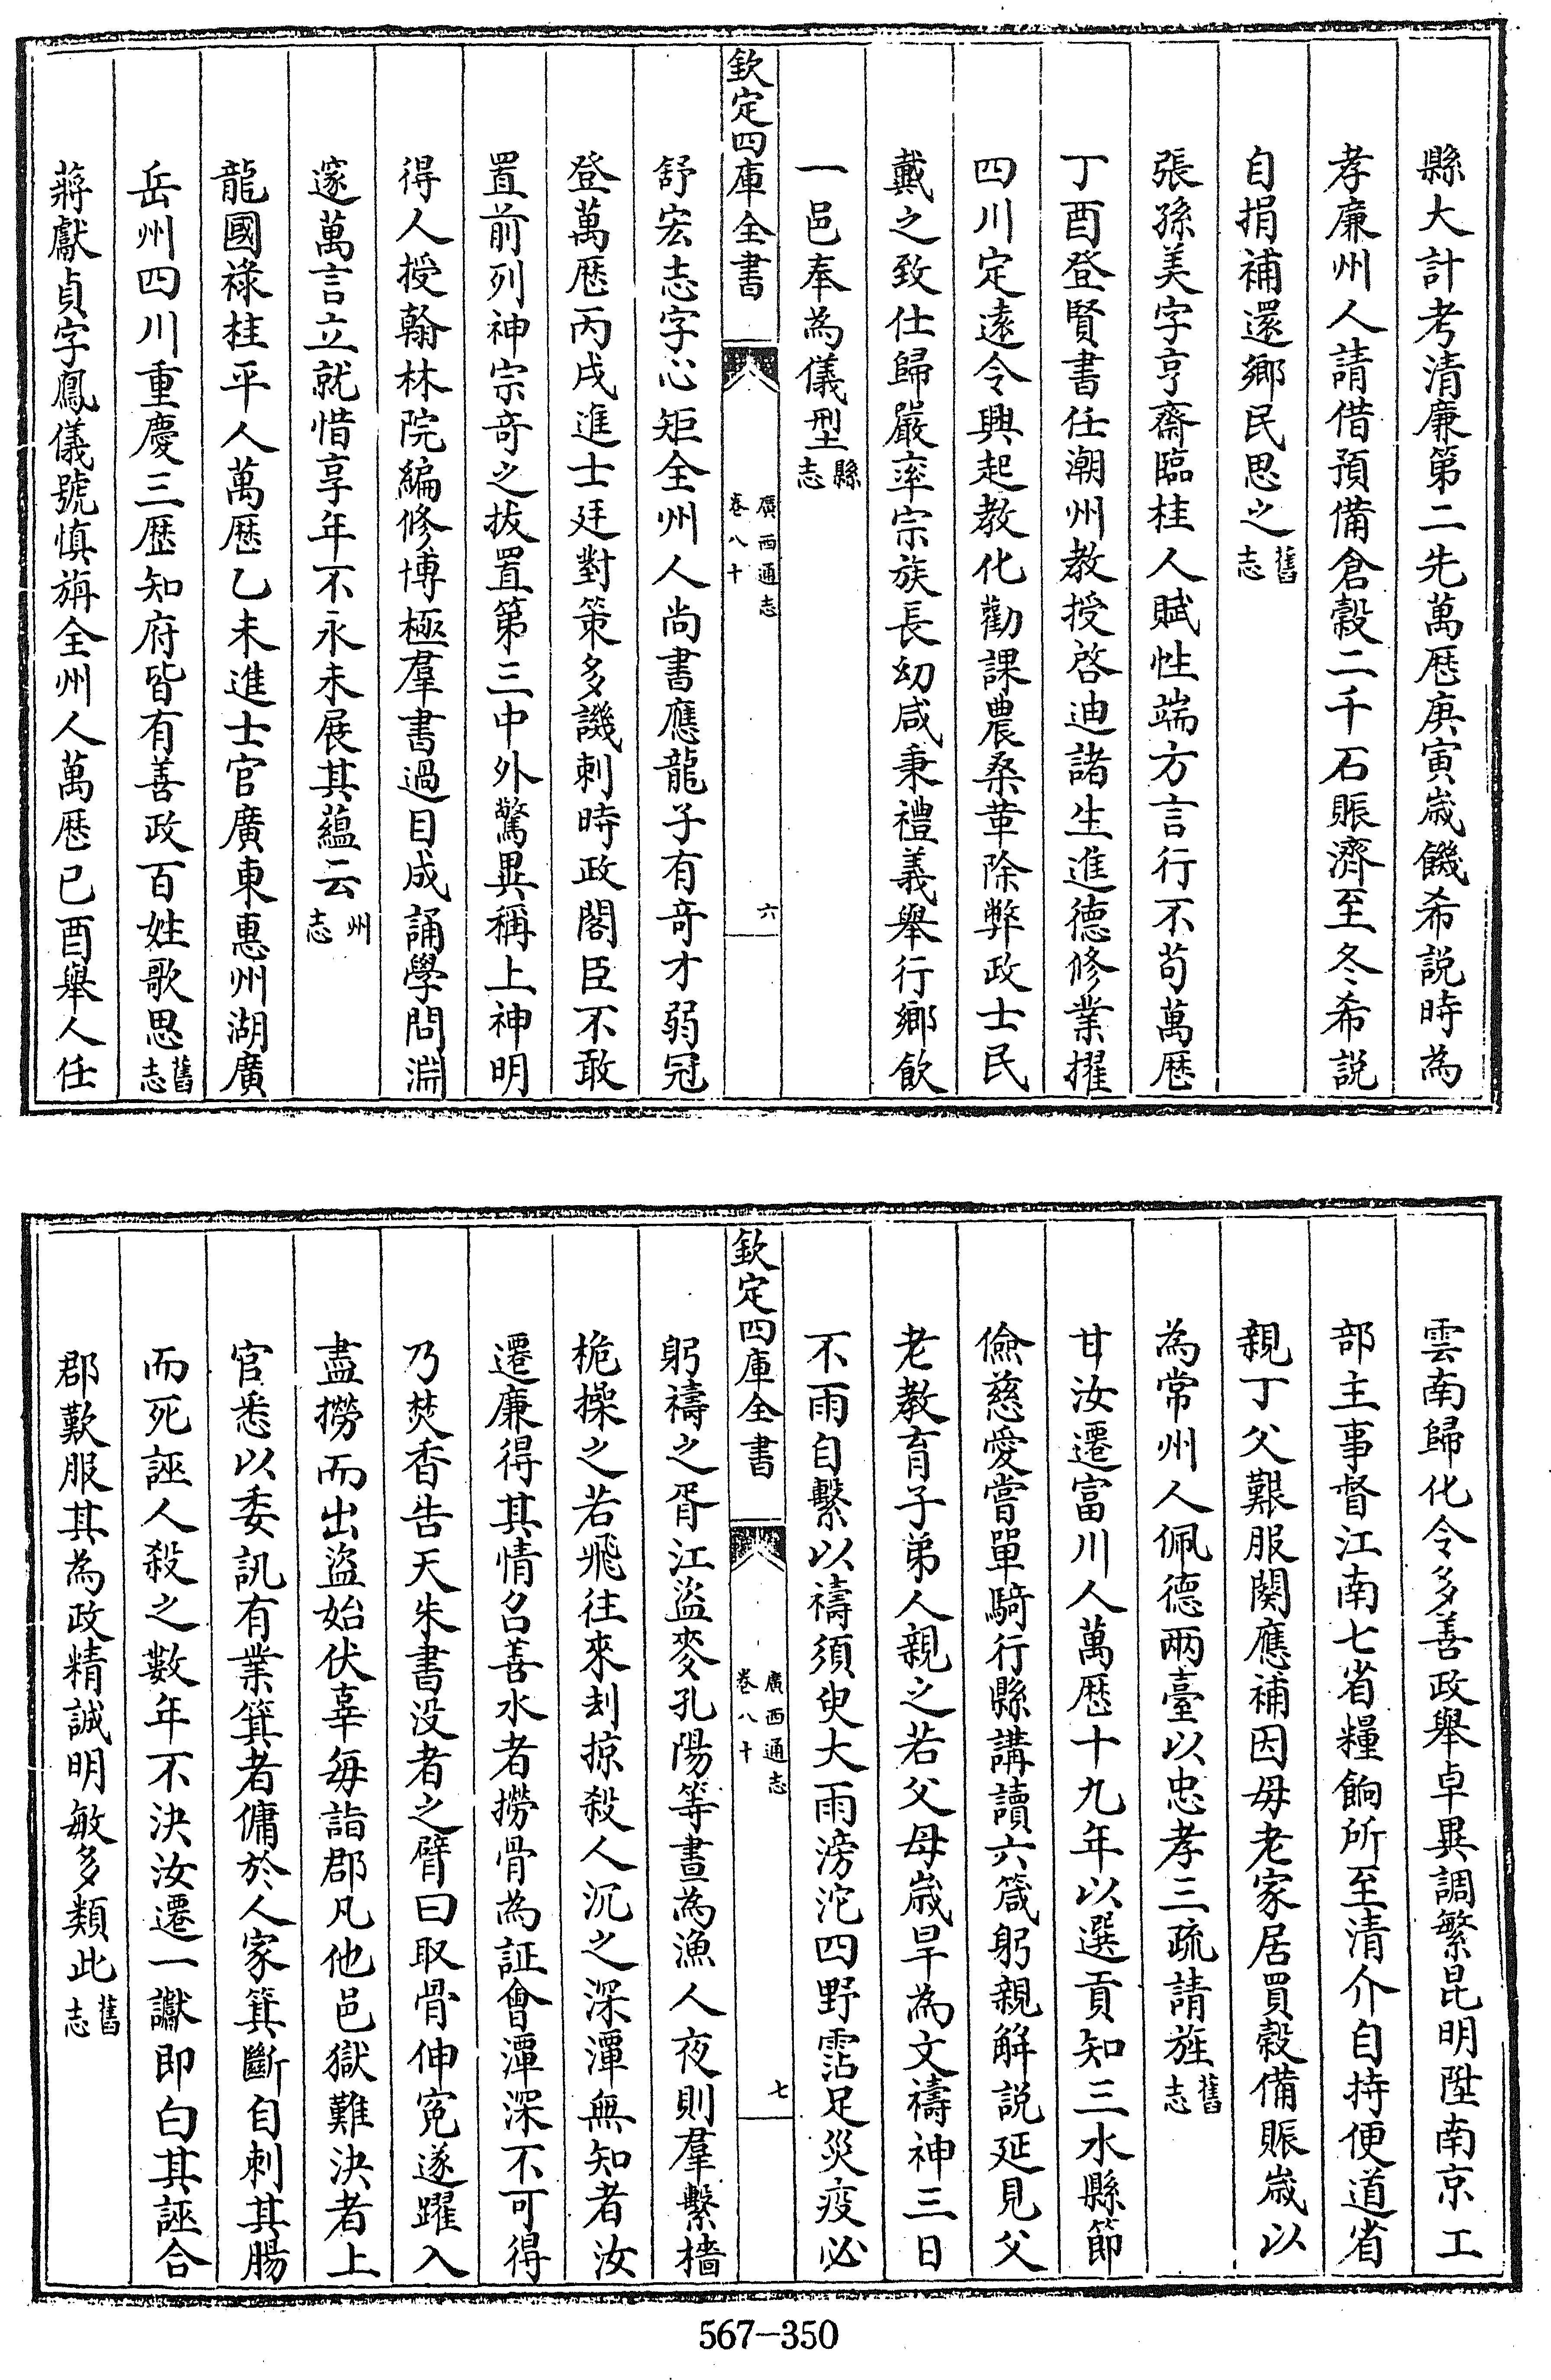 縣大計考清廉第二先萬厯庚寅歲饑希説時為
孝廉州人請借預備倉穀二千石賑濟至冬希説
自捐補還鄉民思之舊志
張孫美字亨齋臨桂人賦性端方言行不苟萬厯
丁酉登賢書任潮州教授啓迪諸生進德修業擢
四川定遠令興起教化勸課農桑革除弊政士民
戴之致仕歸嚴率宗族長幼咸秉禮義舉行鄉飲
一邑奉為儀型縣志
欽定四庫全書 廣西通志 卷八十 六
舒宏志字心矩全州人尚書應龍子有奇才弱冠
登萬厯丙戌進士廷對策多譏刺時政閣臣不敢
置前列神宗奇之拔置第三中外驚異稱上神明
得人授翰林院編修博極羣書過目成誦學問淵
邃萬言立就惜享年不永未展其蘊云州志
龍國禄桂平人萬厯乙未進士官廣東惠州湖廣
岳州四川重慶三歴知府皆有善政百姓歌思舊志
蔣獻貞字鳳儀號慎旃全州人萬厯已酉舉人任
雲南歸化令多善政舉卓異調繁昆明陞南京工
部主事督江南七省糧餉所至清介自持便道省
親丁父艱服闋應補因母老家居買穀備賑歲以
為常州人佩德兩臺以忠孝三疏請旌舊志
甘汝遷富川人萬厯十九年以選貢知三水縣節
儉慈愛嘗單騎行縣講讀六箴躬親解説延見父
老教育子弟人親之若父母歲旱為文禱神三日
不雨自繫以禱須臾大雨滂沱四野霑足災疫必
欽定四庫全書 廣西通志 卷八十 七
躬禱之胥江盜麥孔陽等晝為漁人夜則羣繫檣
桅操之若飛往來刦掠殺人沉之深潭無知者汝
遷廉得其情召善水者撈骨為証會潭深不可得
乃焚香告天朱書没者之臂曰取骨伸寃遂躍入
盡撈而出盜始伏辜每詣郡凡他邑獄難決者上
官悉以委訊有業箕者傭於人家箕斷自刺其腸
而死誣人殺之數年不決汝遷一讞即白其誣合
郡歎服其為政精誠明敏多類此舊志
567-350